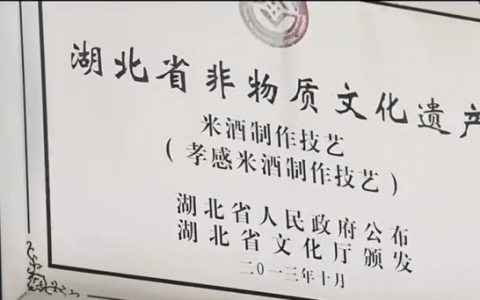 湖北省非物质文化遗产
米酒制作技艺
(孝感米酒制作技艺)
湖北省人民政府公布
湖北省文化厅颁发
二〇一三年十月